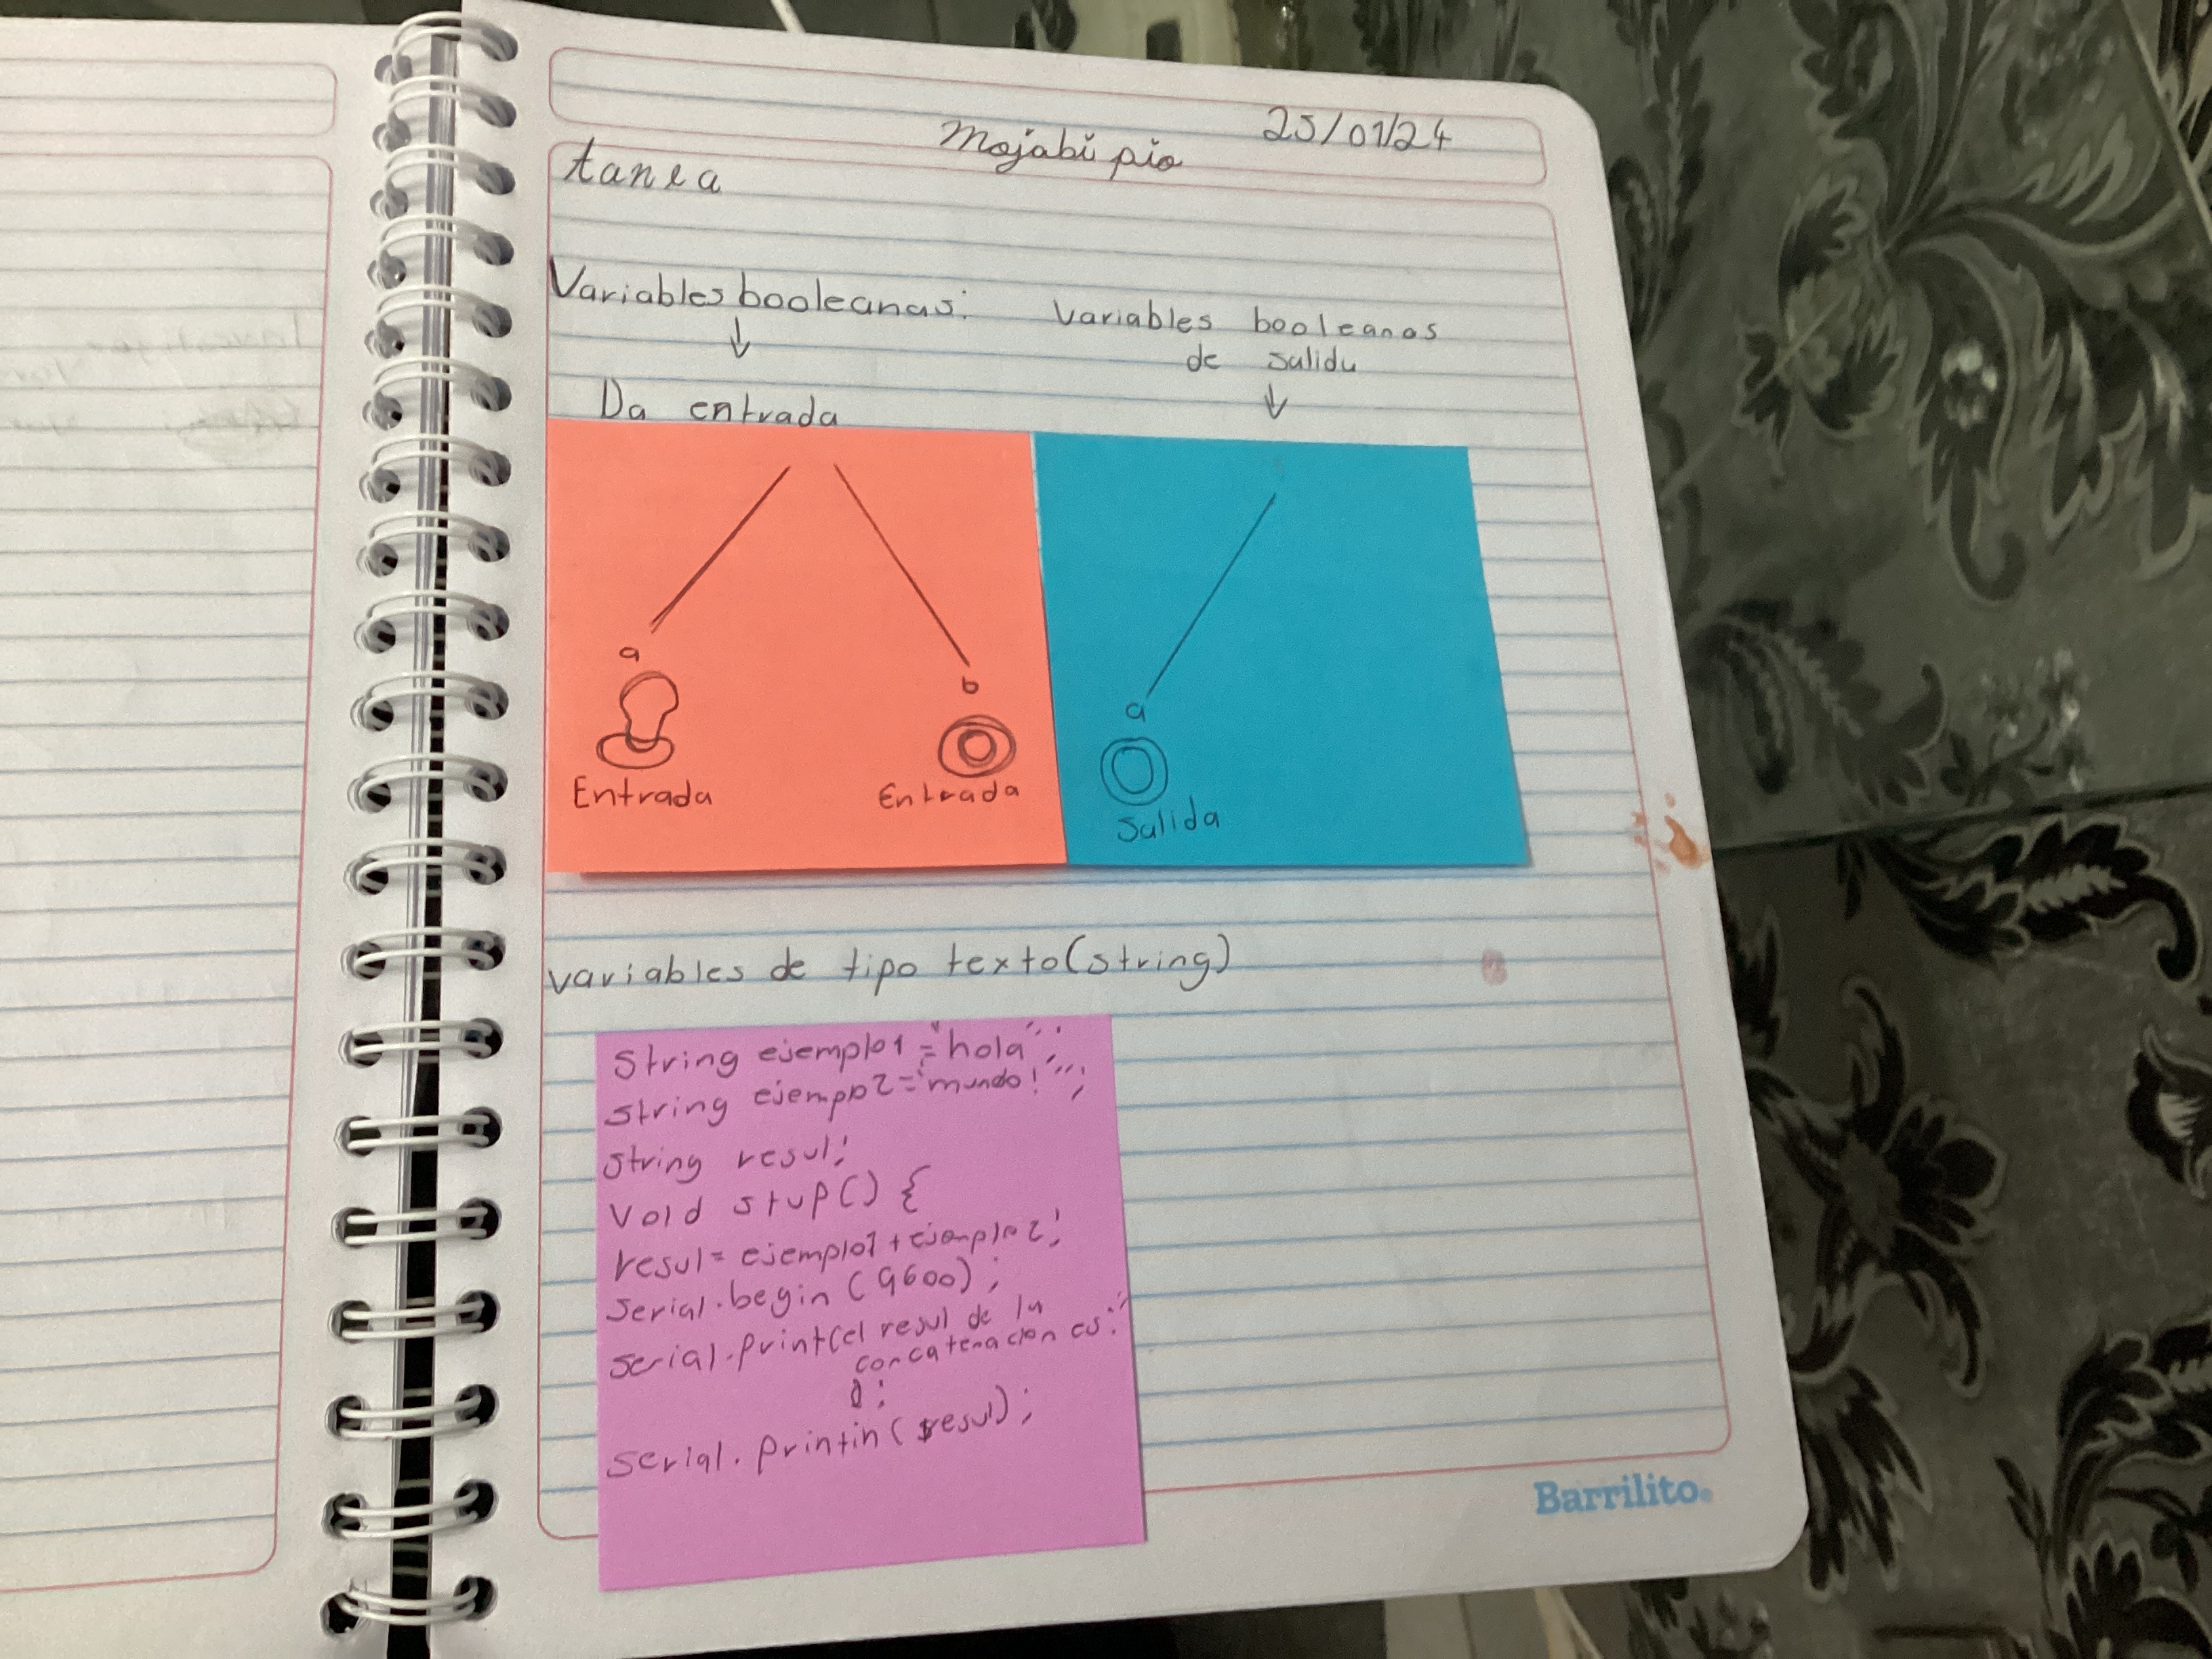 Mojabi pio 25/01/24
tarea
Variables booleanas:
Da entrada
variables booleanas
de salida
a
b
Entrada
Entrada
a
Salida
variables de tipo texto(string)
String ejemplo1="hola";
String ejemplo2="mundo!";
String resul;
Void stup() {
resul= ejemplo1+ejemplo2;
serial.begin (9600);
serial.print(el resul de la
concatenacion es:"
);
serial.printin(resul);
Barrilito